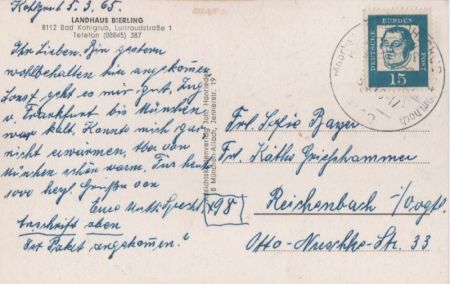 Kohlgrub 5. 3. 65.
LANDHAUS BIERLING
8112 Bad Kohlgrub, Luitraudstraße 1
Telefon (08845) 387
Ihr Lieben. Bin gestern
wohlbehalten hier angekommen.
Sonst geht es mir gut. Zug
v. Frankfurt bis München
war kalt. Konnte mich gar
nicht erwärmen. Aber von
München schön warm. Für heute
1000 herzl. Grüße von
Eure
Anschrift oben
Ist Paket angekommen?
Ansichtskartenverlag Joh. Hanrieder
8 München-Allach, Jennerstr. 19
DEUTSCHE BUNDESPOST
15
Frl. Sofie Bayer
Frl. Käthe
(x98)
Reichenbach i/Vogtl.
Otto-Nuschke-Str. 33